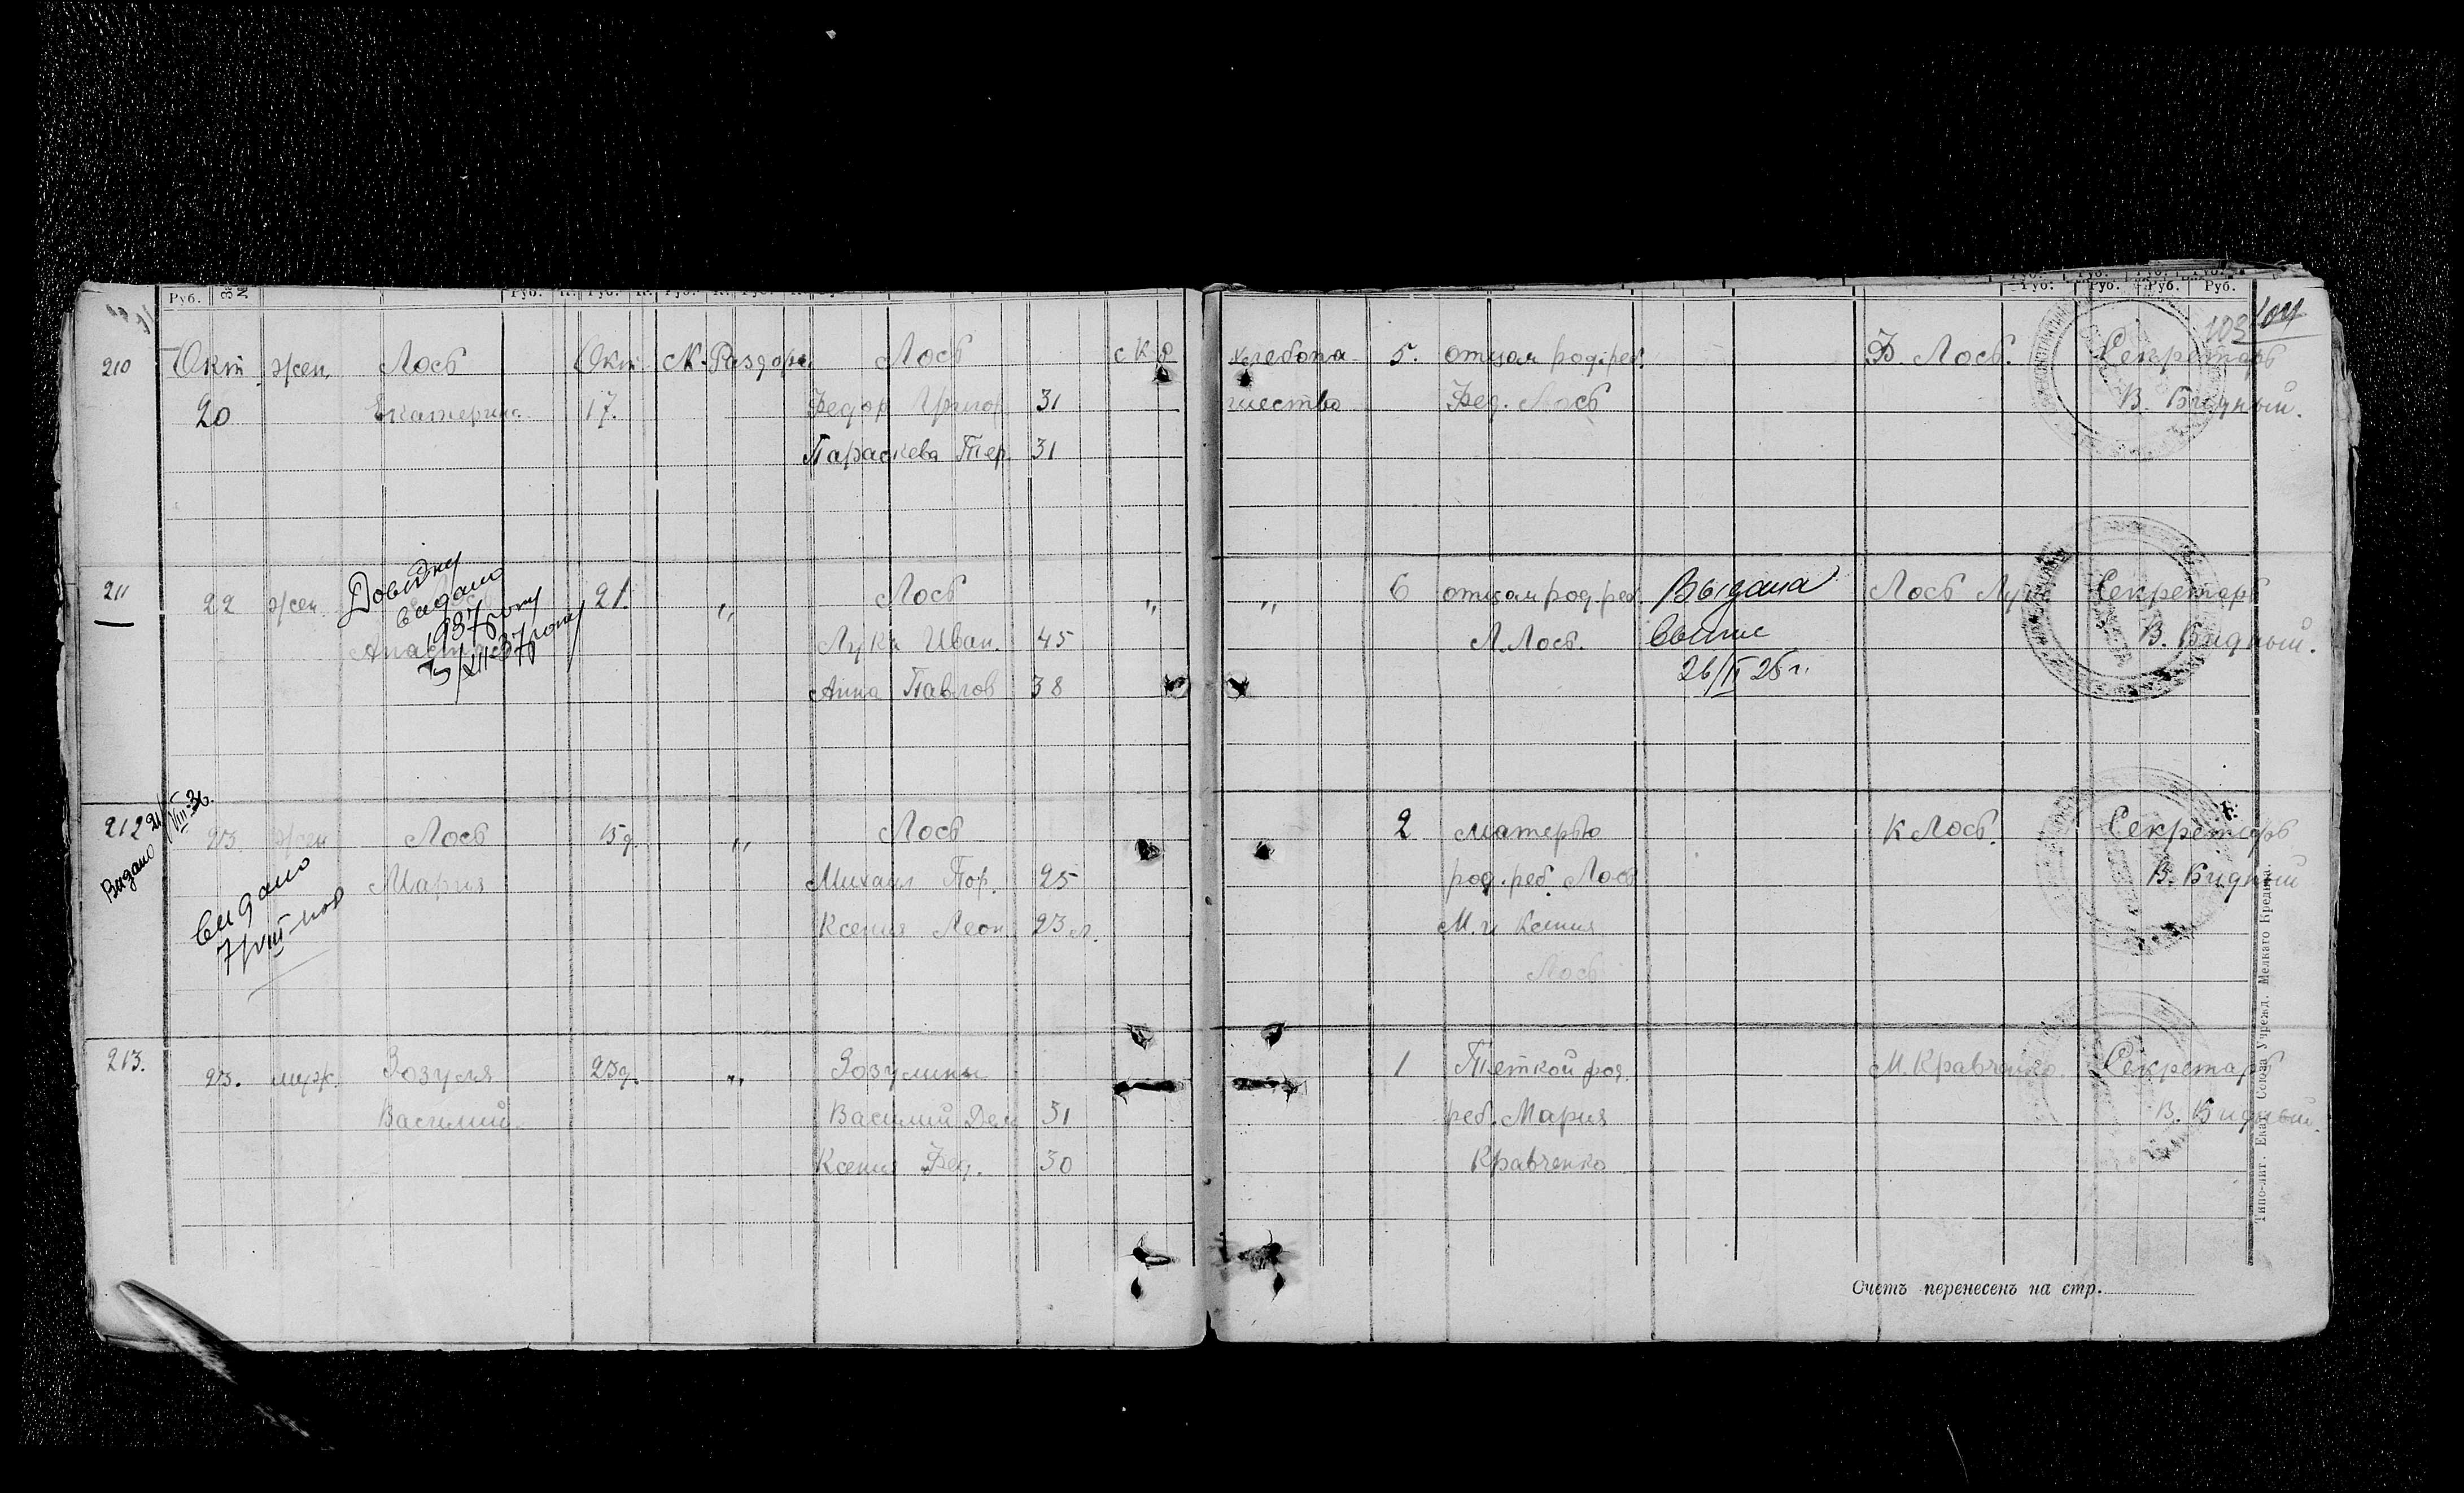 Руб. Руб. Руб. Руб. Руб. Руб. Руб. Руб. Руб.
103 104
210 Окт жен. Лось Окт. М. Раздоры Лось с к о хлебопа- 5. отцом род. реб. Ф. Лось. Секретарь
20 Екатерина 17. Федор Григор. 31 шество Фед. Лось В. Бидный.
Параскева Тер. 31
211 22 жен 21. „ Лось „ „ 6 отцом род. реб Выдана Лось Лук Секретарь
Довидку
видано
1937 року
3/XII-37 року
Анаст Лука Иван. 45 Л. Лось. выпис В. Бидный.
Анна Павлов 38 26/II 25 г.
212 23. жен Лось 15д. „ Лось „ 2 матерью К Лось. Секретарь
Видано 21/VIII-36.
Мария Михаил Пор. 25 род. реб. Лось В. Бидный
видано
7/VIII
Ксения Леон 23 л. М. и Ксения
Лось
213. 23. муж. Зозуля 23д. „ Зозулины 1 Теткой род. М. Кравченко Секретарь
Василий Василий Дем 31 реб. Мария В. Бидный.
Ксения Фед. 30 Кравченко
Типо-лит. Екат. Союза Учрежд. Мелкаго Кредита.
Счетъ перенесенъ на стр.